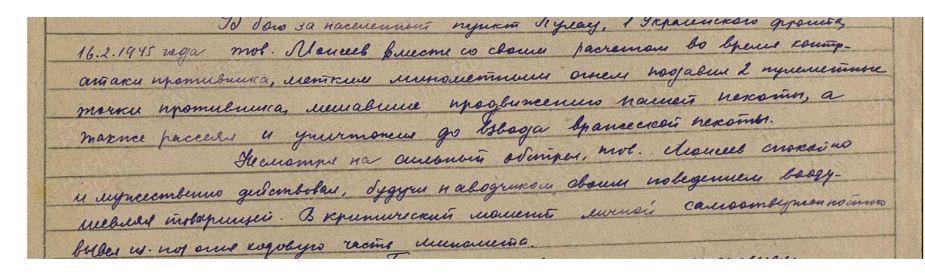 В бою за населенный пункт Пулау, 1 Украинского фронта,
16.2.1945 года тов. Моисеев вместе со своим расчетом во время контр-
атаки противника, метким минометным огнем подавил 2 пулеметные
точки противника, мешавшие продвижению нашей пехоты, а
также рассеял и уничтожил до взвода вражеской пехоты.
Несмотря на сильный обстрел, тов. Моисеев спокойно
и мужественно действовал, будучи наводчиком, своим поведением вооду-
шевляя товарищей. В критический момент личной самоотверженностью
вывел из-под огня ходовую часть миномета.